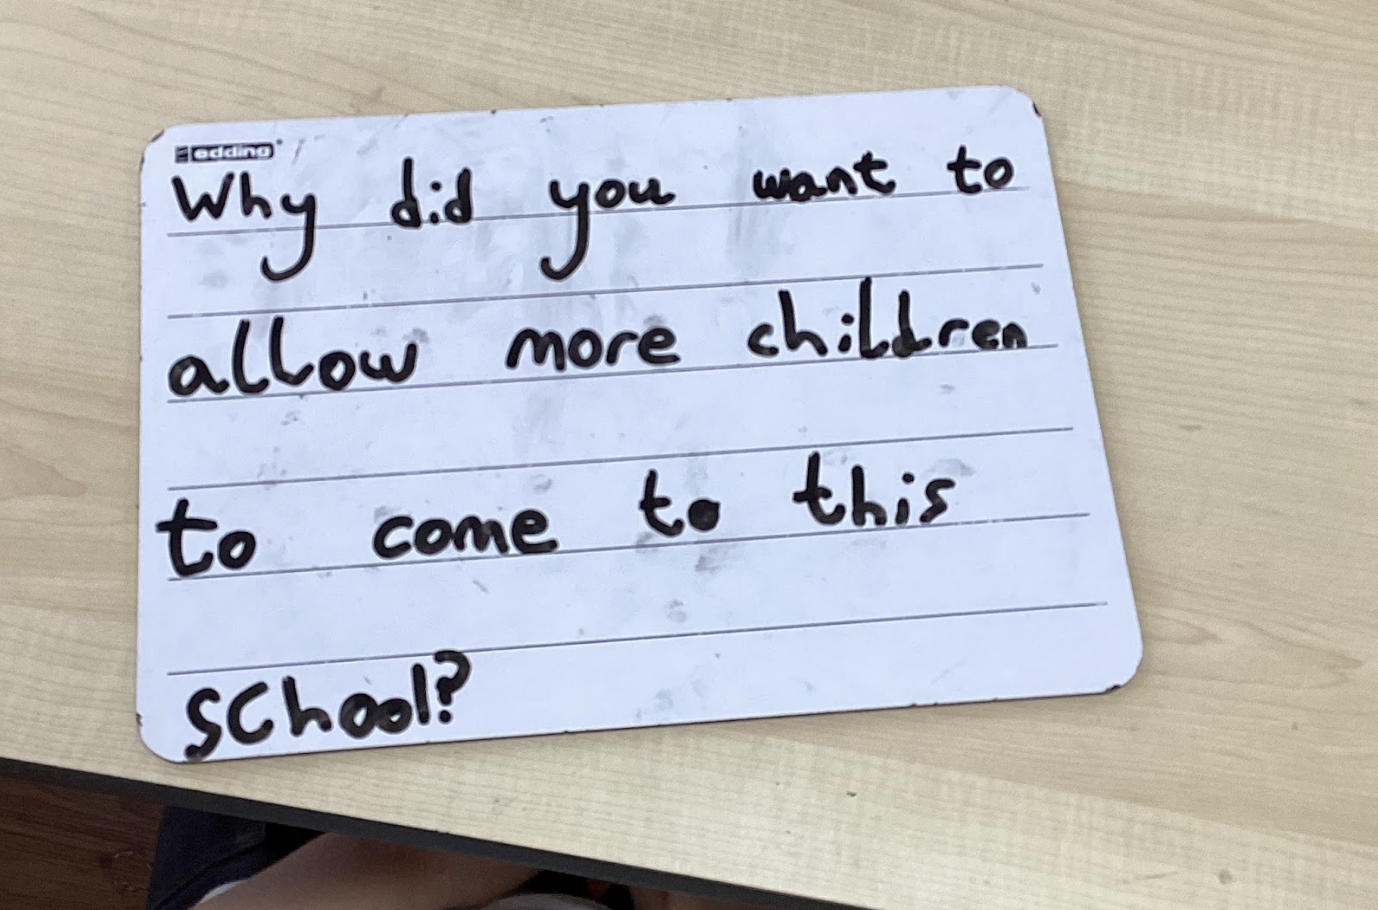 edding
Why did you want to
allow more children
to come to this
school?